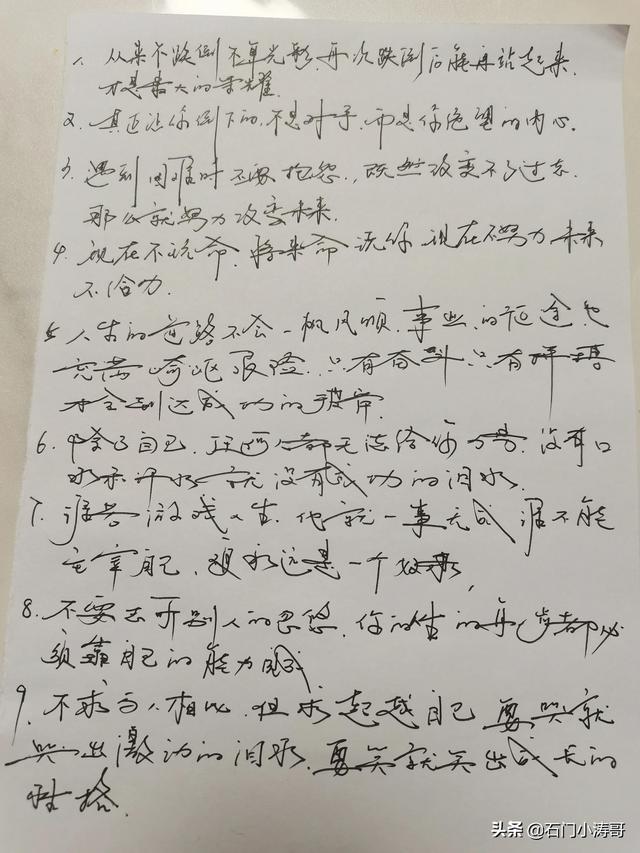 1、从来不跌倒不算光彩,再次跌倒后能再站起来,
才是最大的荣耀.
2、真正让你倒下的,不是对手,而是你绝望的内心.
3、遇到困难时不要抱怨,既然改变不了过去.
那么就努力改变未来.
4、现在不说命,将来命说你,现在不努力未来
不给力.
5、人生的道路不会一帆风顺,事业的征途也
充满崎岖艰险,只有奋斗只有拼搏
才会到达成功的彼岸.
6、除了自己,任何人都无法给你力量,没有口
水和汗水就没有成功的泪水.
7、谁若游戏人生,他就一事无成 谁不能
主宰自己,便永远是一个奴隶,
8、不要去听别人的忽悠,你人生的每一步都必
须靠自己的能力完成
9、不求与人相比,但求超越自己 要哭就
哭出激动的泪水,要笑就笑出成长的
性格.
头条 @石门小涛哥